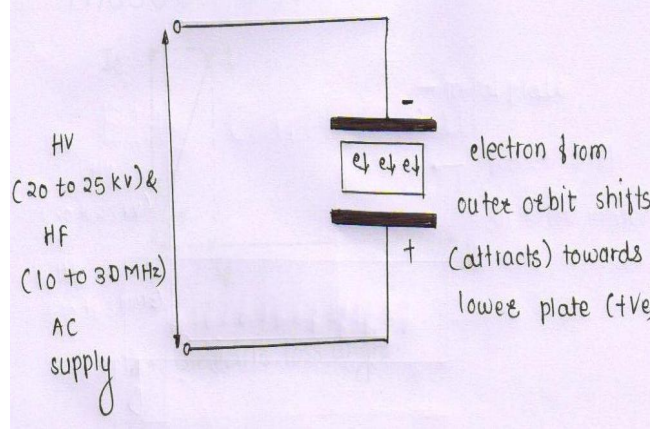 HV
(20 to 25 kV) &
HF
(10 to 30 MHz)
AC
supply
-
e↓ e↓ e↓
+
electron from
outer orbit shifts
(attracts) towards
lower plate (+Ve